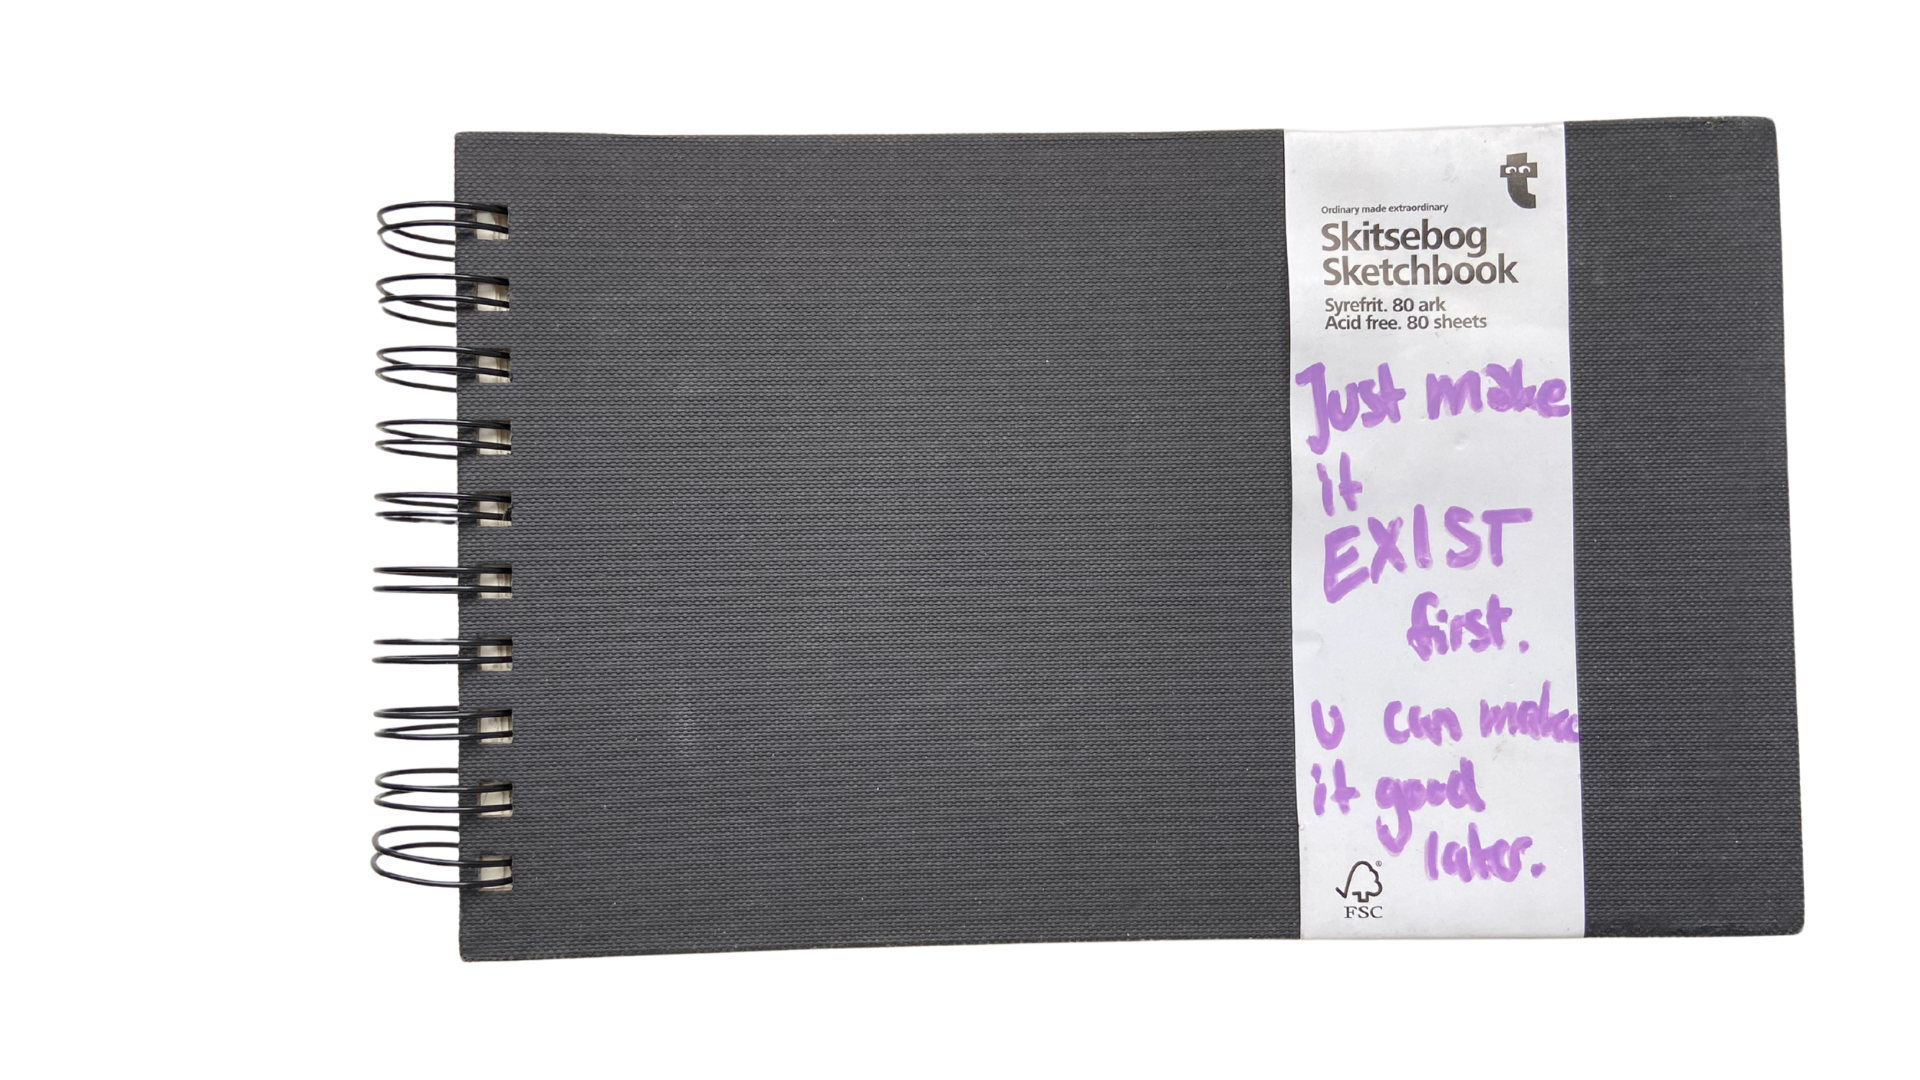 Ordinary made extraordinary
Skitsebog
Sketchbook
Syrefrit. 80 ark
Acid free. 80 sheets
Just make
it
EXIST
first.
U can make
it good
later.
FSC